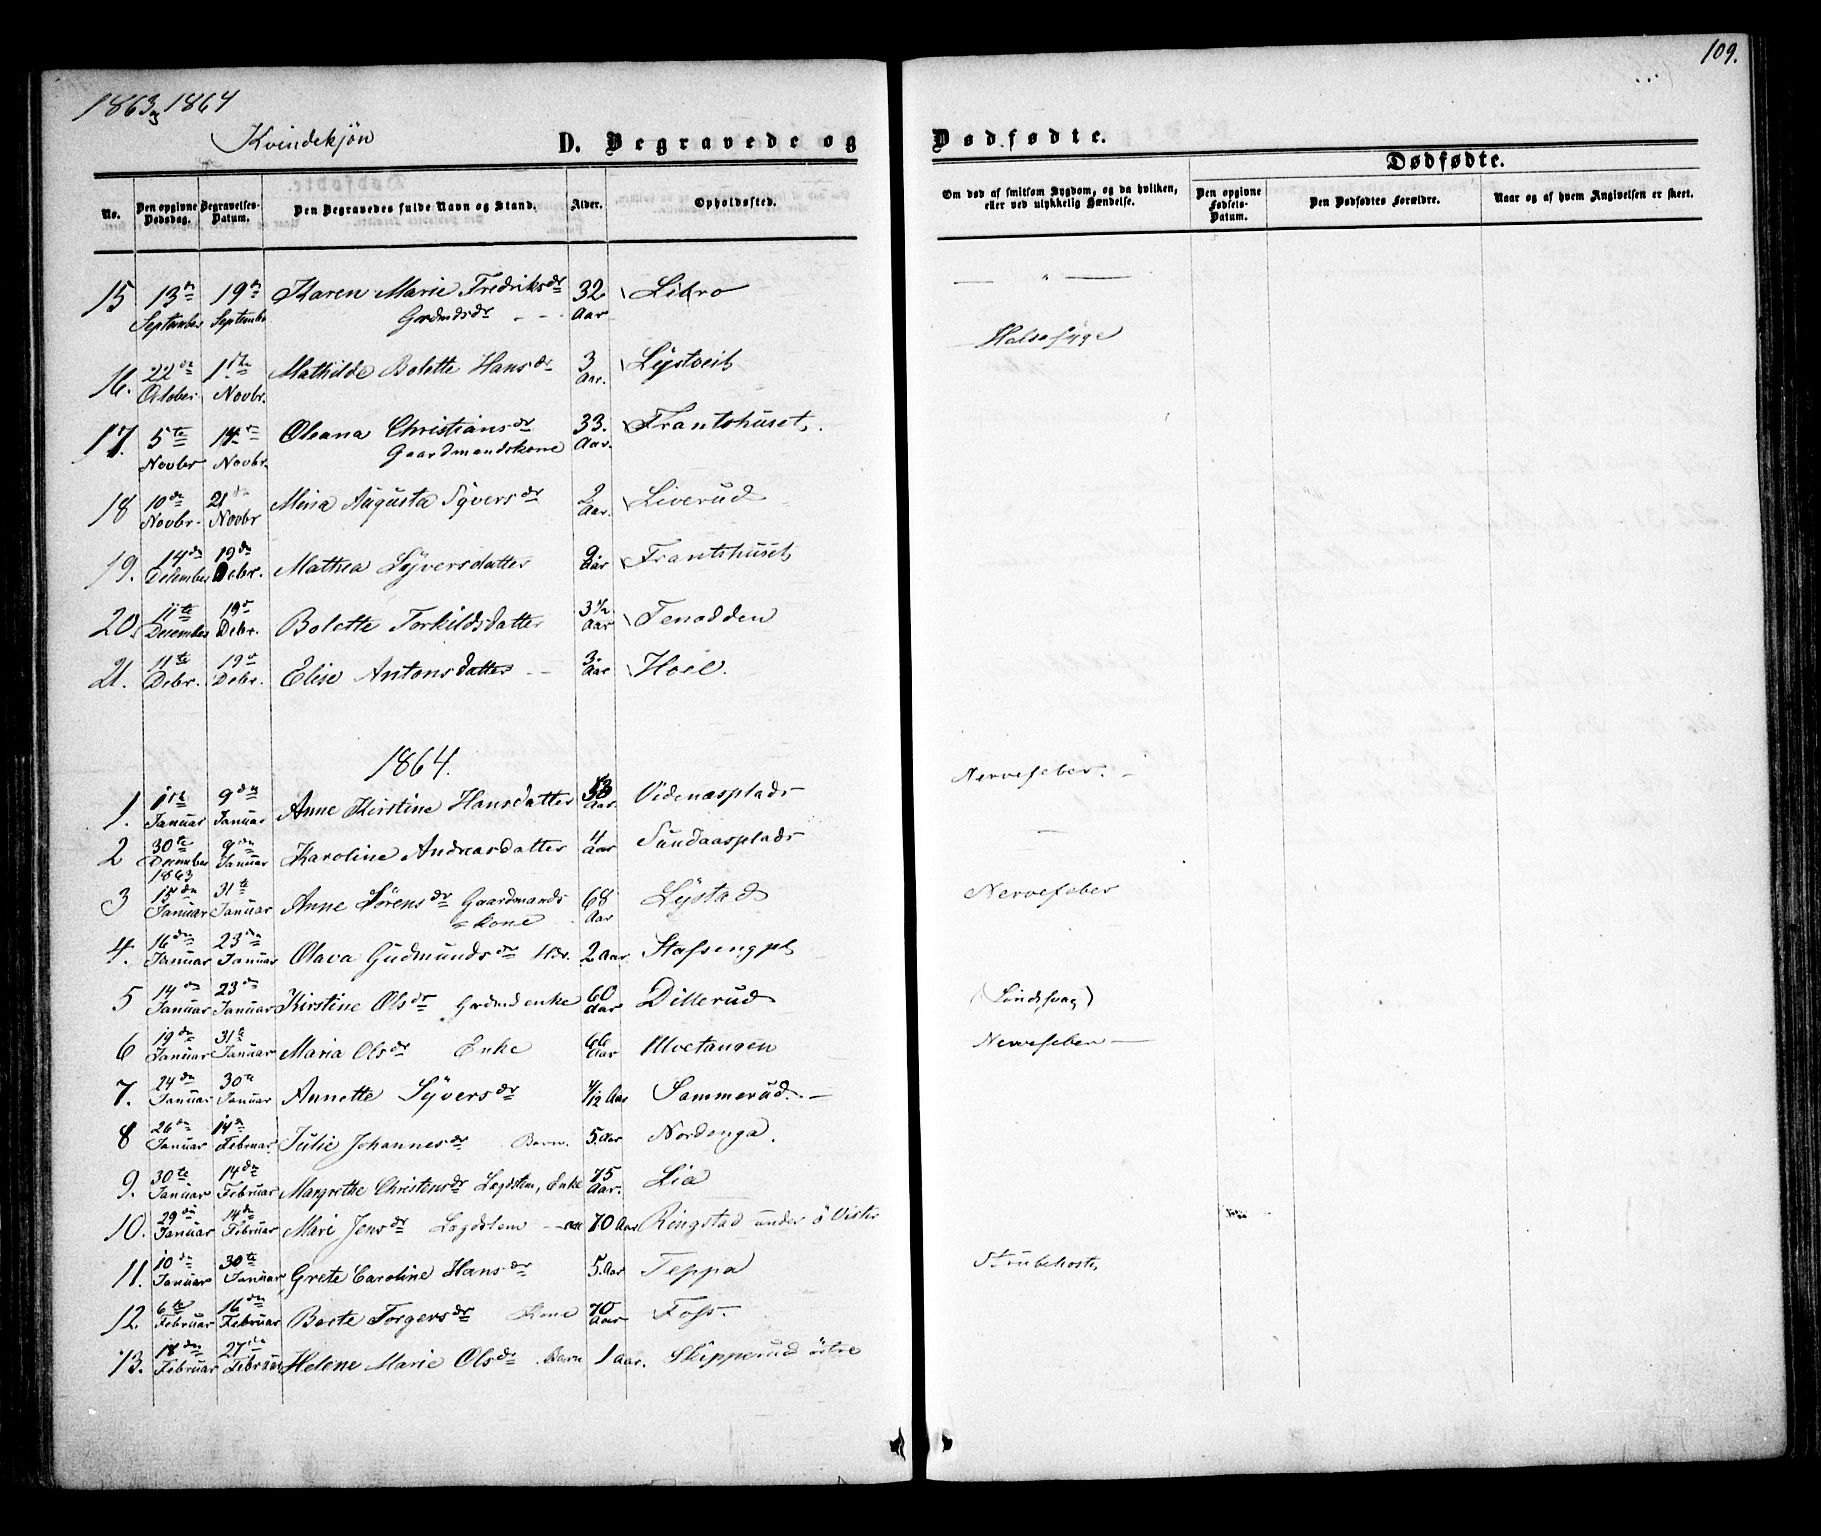 109.
1863 & 1864
Kvindekjøn
D. Begravede og Dødfødte.
Dødfødte.
No.
Den opgivne Dødsdag.
Begravelses-Datum.
Den Begravedes fulde Navn og Stand.
Alder.
Opholdssted.
Om død af smitsom Sygdom, og da hvilken, eller ved ulykkelig Hændelse.
Den opgivne Fødsels-Datum.
Den Dødfødtes Forældre.
Naar og af hvem Angivelsen er skeet.
15 13de September 19de September Karen Marie Fredriksdr 32 Aar Likro — " —
Gaardmdsdr - -
16. 22de October 1ste Novbr. Mathilde Bolette Hansdr 3 Aar. Lystveit Halssyge
17. 5te Novbr 14de Novbr. Oleana Christiansdr Gaardmandskone 33. Aar. Frantshuset.
18 10de Novbr. 21de Novbr Mina Augusta Syversdr 2 Aar. Liverud
19. 14de December 19de Debr. Mathea Syversdatter 9 Aar Frantshuset
20. 11te December 19de Debr. Bolette Torkildsdatter 3 1/2 Aar Tenodden
21. 11te Debr. 19de Debr. Elise Antonsdatter - - 3 Aar Hoel.
1864.
1. 1ste Januar 9de Januar Anne Kirstine Hansdatter Aar. Videnæsplads Nervefeber. -
2 30te December 1863 9de Januar Karoline Andreasdatter 4 Aar Sundaasplads —
3 15de Januar 31te Januar Anne Sørensdr Gaardmands=kone 68 Aar Lystad Nervefeber
4. 16de Januar 23de Januar Olava Gudmundsdr 2 Aar. Stafsengpl
5 14de Januar 23de Januar Kirstine Olsdr Gardmdenke 60 Aar Dillerud
6 19de Januar 31te Januar Maria Olsdr Enke 66 Aar Ulvetangen Nervefeber —
7. 24de Januar 30te Januar Annette Syversdr 4/12 Aar Sommerud. -
8 26de Januar 14de Februar. Julie Johannesdr Barn. 5. Aar Nordenga.
9. 30te Januar 14de Februar Margrethe Christensdr Lægdslem, Enke 75 Aar. Lia
10. 29de Januar 14de Februar Mari Jensdr Lægdslem 70 Aar Ringstad under ø Vister
11. 10de Januar 30te Januar Grete Caroline Hansdr 5. Aar Teppa Strubehoste
12. 6te Februar 16de Februar Berte Torgersdr Kone 70 Aar Foss.
13. 18de Februar 27de Februar Helene Marie Olsdr Barn 1 Aar. Skipperud östre